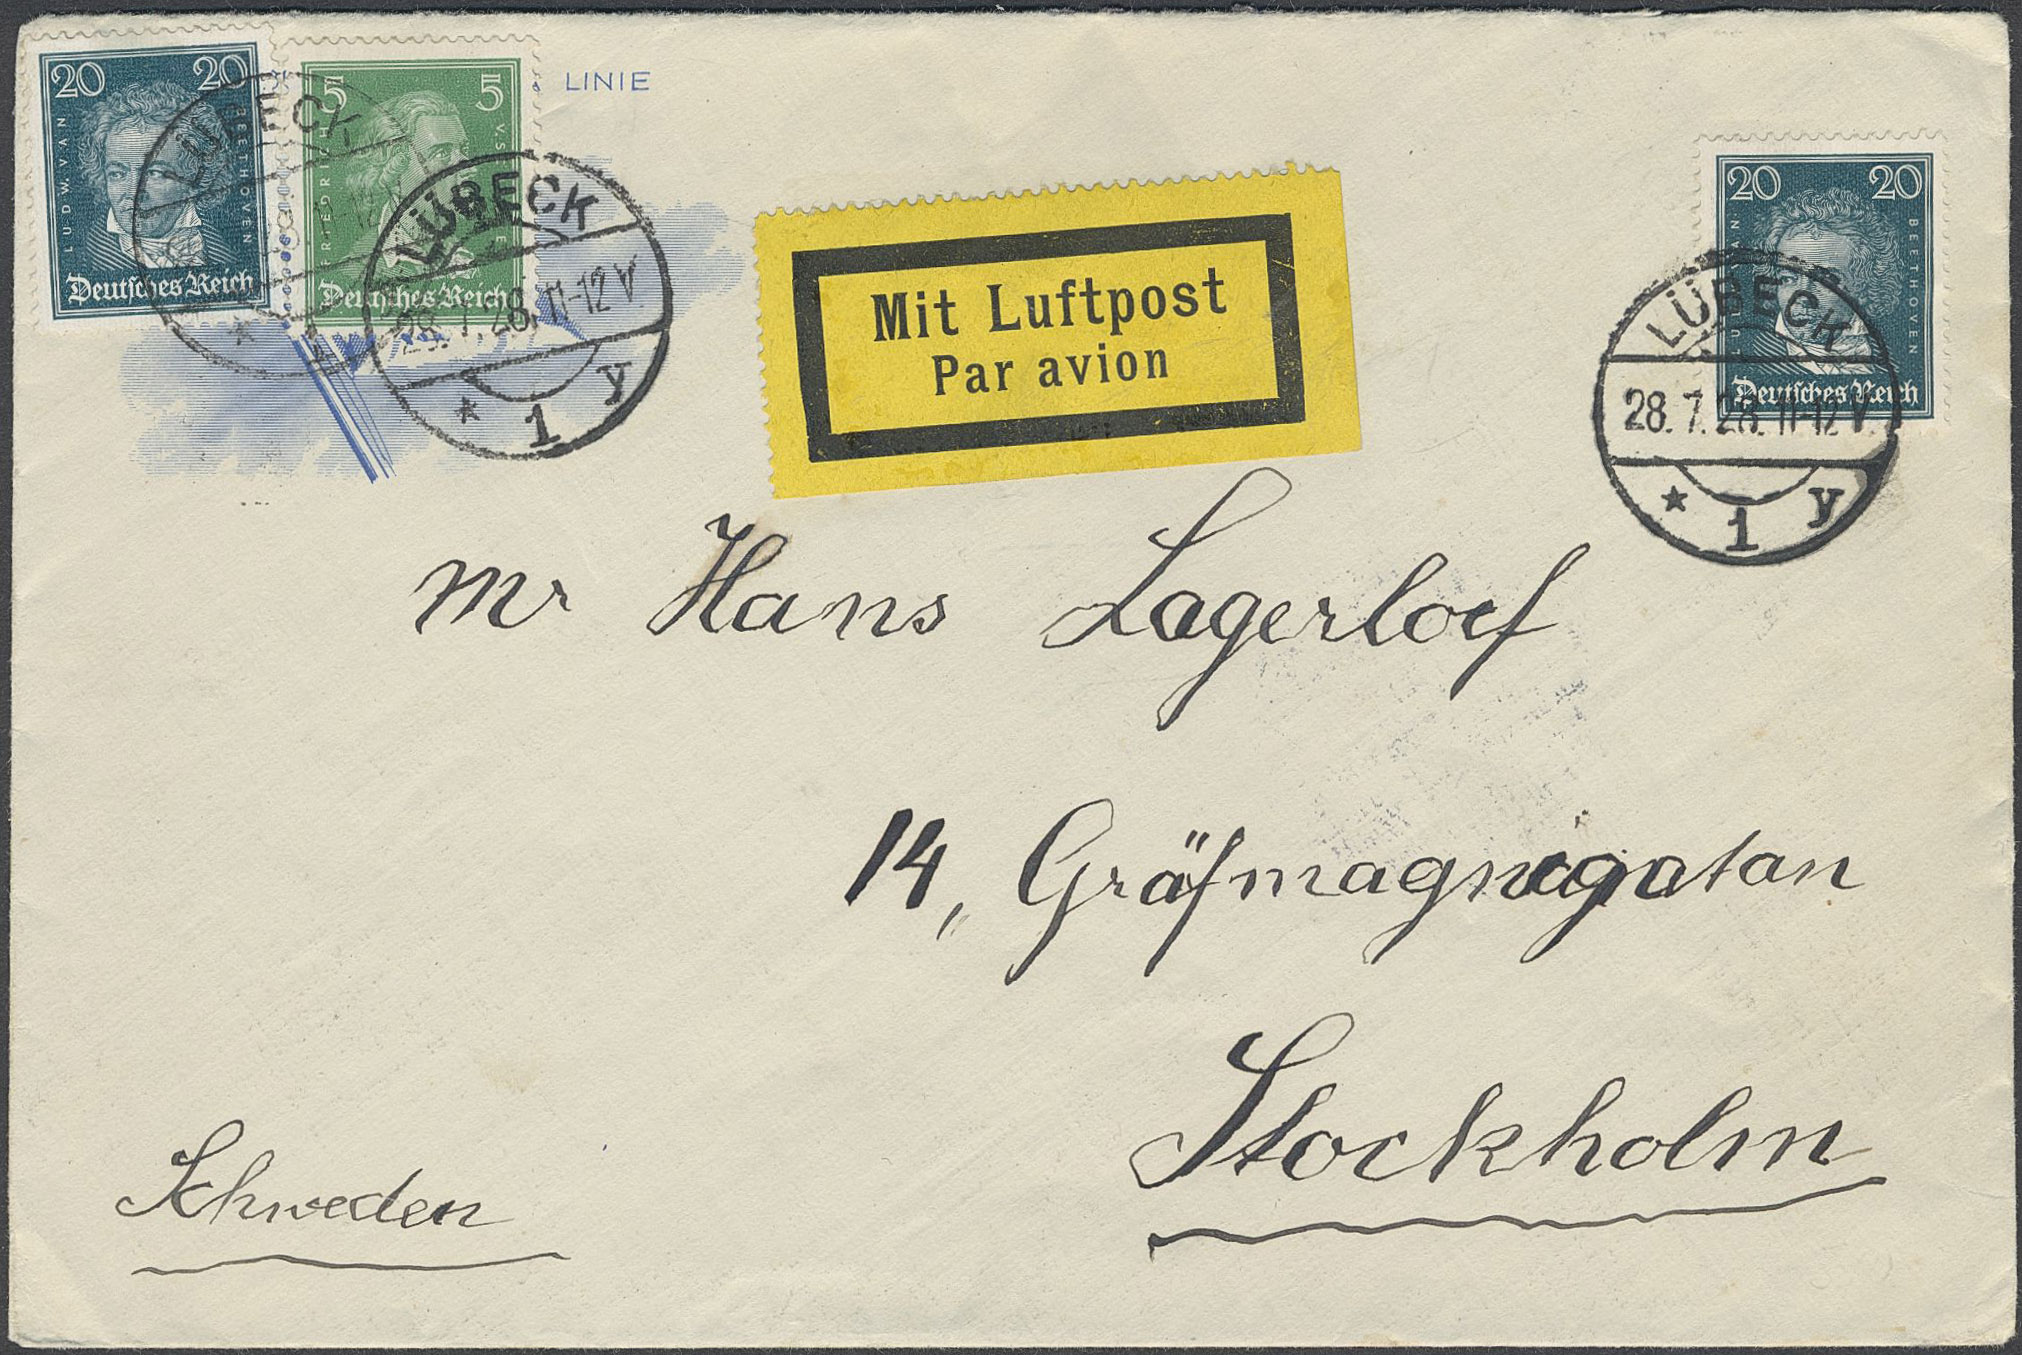 20 20
LUDW. VAN BEETHOVEN
Deutsches Reich
5 5
Deutsches Reich
LINIE
LÜBECK
LÜBECK
28.7.28.11-12 V
* 1 y
Mit Luftpost
Par avion
20 20
VAN BEETHOVEN
Deutsches Reich
LÜBECK
28.7.28.11-12 V
* 1 y
Mr Hans Lagerloef
14, Gräfmagnigatan
Stockholm
Schweden